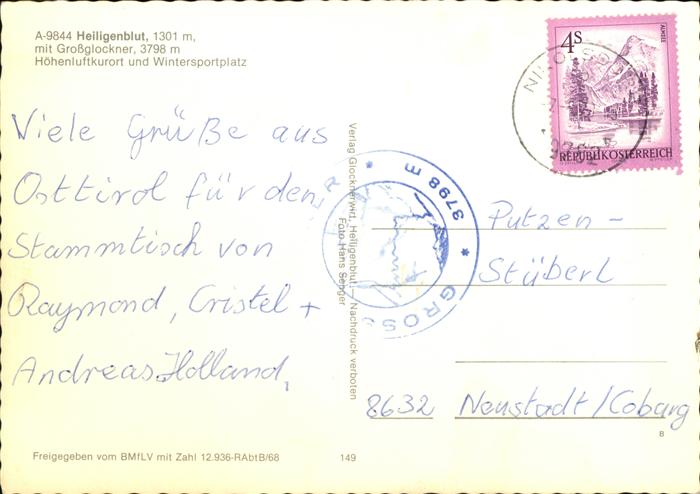 A-9844 Heiligenblut, 1301 m,
mit Großglockner, 3798 m
Höhenluftkurort und Wintersportplatz
Viele Grüße aus
Osttirol für den
Stammtisch von
Raymond, Cristel +
Andreas Holland,
Freigegeben vom BMfLV mit Zahl 12.936-RAbtB/68
149
Verlag Glocknerwirt, Heiligenblut — Nachdruck verboten
Foto Hans Senger
* 3798 m *
GROSS
ER
4 S
ALMSEE
REPUBLIK ÖSTERREICH
NIKOLSDORF
Putzen-
Stüberl
8632 Neustadt/Coburg
B